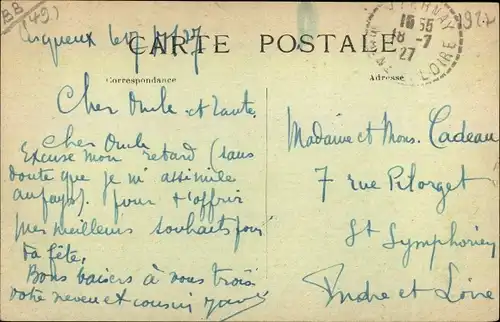 BB
(49)
le 17/7/27
CARTE POSTALE
16 55
18-7
27
LOIRE
1927
Correspondance
Adresse
Cher Oncle et tante,
Cher Oncle
Excuse mon retard (sans
doute que je m'assimile
au pays). pour t'offrir
mes meilleurs souhaits pour
ta fête.
Bons baisers à vous trois
votre neveu et cousin
Madame et Mons. Cadeau
7 rue Pilorget
St Symphorien
Indre et Loire